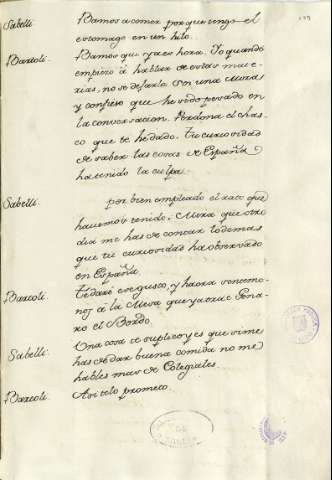 Sabelli. Vamos a comer porque tengo el
estomago en un hilo.
Bartoli. Vamos que ya es hora. Yo quando
empiezo á hablar de estas mate-
rias, no se dejarlo. Son una
y confieso que he sido pesado en
la conversacion. Perdona el chas-
co que te he dado. Tu curiosidad
de saber las cosas de España
ha tenido la culpa.
Sabelli. por bien empleado el rato que
hauemos tenido. Mira que otro
dia me has de contar lo demas
que tu curiosidad ha observado
en España.
Bartoli. Te daré ese gusto, y haora
á la Mesa que ya trae Gena-
ro el
Sabelli. Una cosa te suplico y es que si me
has de dar buena comida no me
hables mas de Colegiales.
Bartoli. Asi telo prometo.